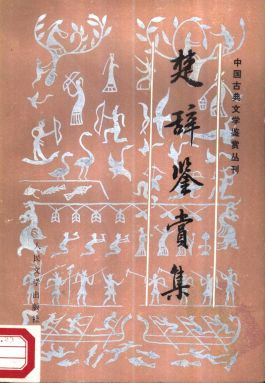 中国古典文学鉴赏丛刊
楚辞鉴赏集
人民文学出版社